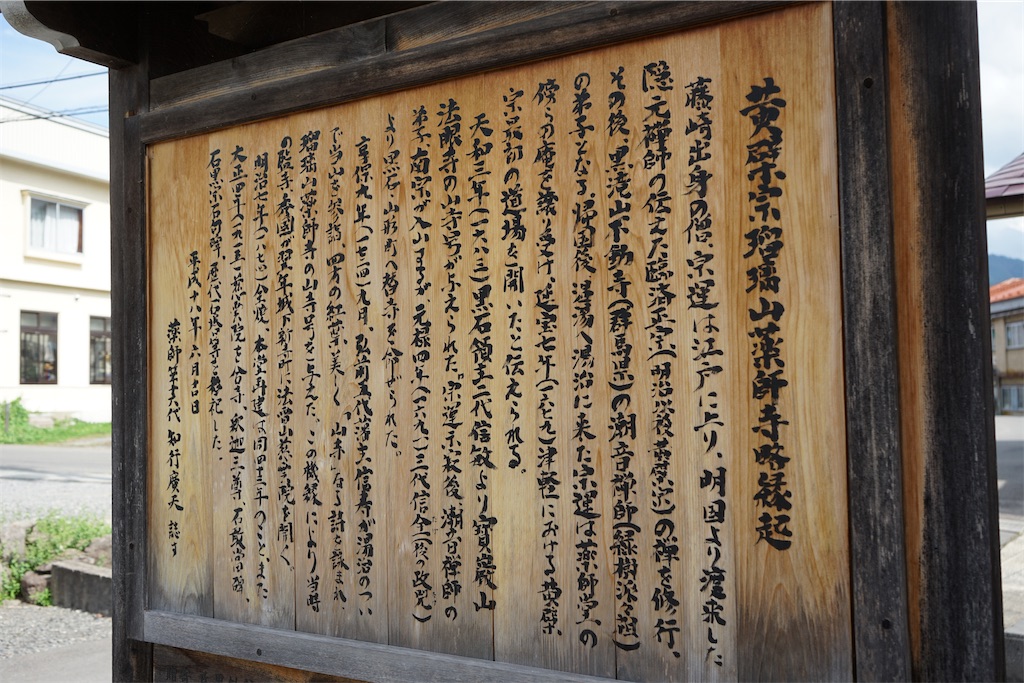 黄檗宗瑠璃山薬師寺略縁起
藤崎出身の僧、宗運は江戸に上り、明国より渡来した
隠元禅師の伝えた臨済正宗(明治以後黄檗宗)の禅を修行、
その後、黒滝山不動寺(群馬県)の潮音禅師(緑樹派々祖)
の弟子となる。帰国後、湯治に来た宗運は薬師堂の
傍らの庵を譲り受け、延宝七年(一六七九)津軽における黄檗
宗最初の道場を開いたと伝えられる。
天和三年(一六八三)黒石領主二代信敏より寳巌山
法眼寺の山寺号が与えられた。宗運示寂後、潮音禅師の
弟子、南宗が入山するが、元禄四年(一六九一)三代信全(後の政兕)
より黒石・山形町へ移寺を命ぜられた。
享保九年(一七二四)九月、弘前五代藩主信寿が湯治のつい
で当山を参詣、四方の紅葉美しく「山寺」なる詩を詠まれ
瑠璃山薬師寺の山寺号を与えた。この機縁により当時
の臨寺、泰國が翌年城下新町に法雲山慈雲院を開く。
明治七年(一八七四)全焼、本堂再建は同四十三年のことまた
大正四年(一九一五)慈雲院を合寺、釈迦三尊、石敢當の碑、
石黒宗石術碑、歴代石城守等を移祀した。
平成十八年六月廿日
薬師第十六代 知行廣夫 誌す